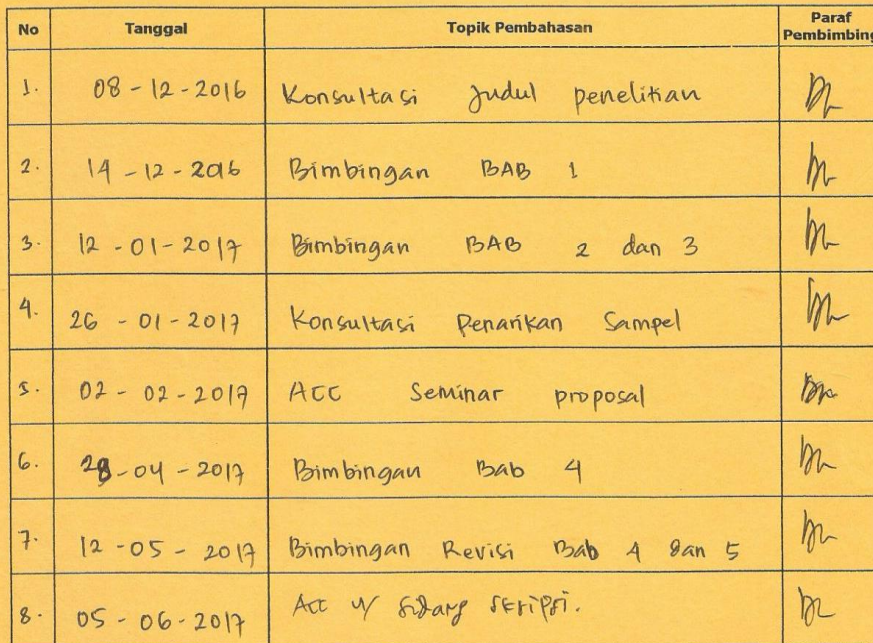 No Tanggal Topik Pembahasan Paraf
Pembimbing
1. 08-12-2016 Konsultasi Judul penelitian
2. 14-12-2016 Bimbingan BAB 1
3. 12-01-2017 Bimbingan BAB 2 dan 3
4. 26-01-2017 Konsultasi Penarikan Sampel
5. 02-02-2017 ACC Seminar proposal
6. 28-04-2017 Bimbingan Bab 4
7. 12-05-2017 Bimbingan Revisi Bab 4 dan 5
8. 05-06-2017 Acc u/ sidang skripsi.